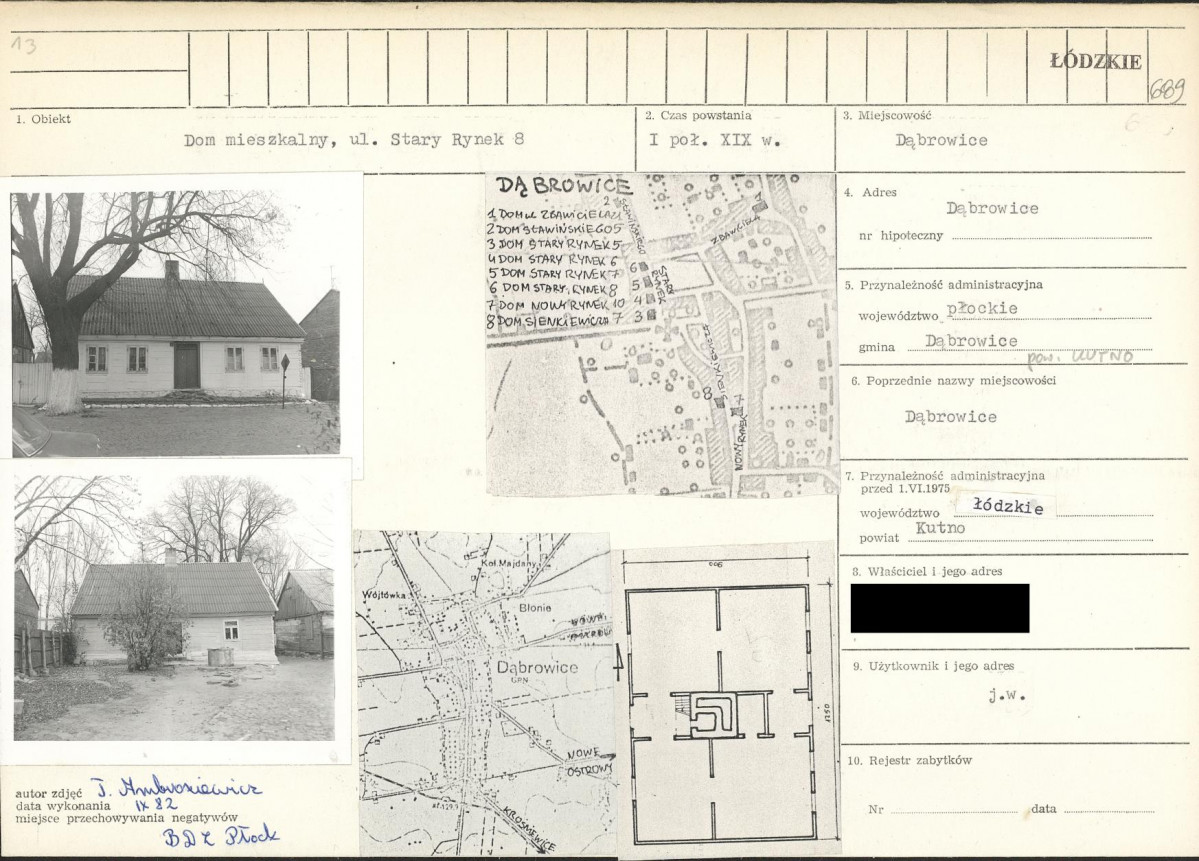 13
ŁÓDZKIE
689
1. Obiekt
Dom mieszkalny, ul. Stary Rynek 8
2. Czas powstania
I poł. XIX w.
3. Miejscowość
Dąbrowice
6
4. Adres
Dąbrowice
nr hipoteczny
5. Przynależność administracyjna
województwo płockie
gmina Dąbrowice
pow. KUTNO
6. Poprzednie nazwy miejscowości
Dąbrowice
7. Przynależność administracyjna
przed 1.VI.1975
województwo łódzkie
powiat Kutno
8. Właściciel i jego adres
9. Użytkownik i jego adres
j.w.
10. Rejestr zabytków
Nr data
DĄBROWICE
1 DOM UL ZBAWICIELA 2
2 DOM SŁAWIŃSKIEGO 5
3 DOM STARY RYNEK 5
4 DOM STARY RYNEK 6
5 DOM STARY RYNEK 7
6 DOM STARY RYNEK 8
7 DOM NOWY RYNEK 10
8 DOM SIENKIEWICZA 7
2
SŁAWIŃSKIEGO
ZBAWICIELA
1
6
5
4
3
STARY
RYNEK
SIENKIEWICZA
8
7
NOWY RYNEK
Kol. Majdany
Wójtówka
Błonie
Dąbrowice
GRN
NOWE
OSTROWY
KROŚNIEWICE
900
1250
autor zdjęć T. Ambroziewicz
data wykonania IX 82
miejsce przechowywania negatywów
BDZ Płock